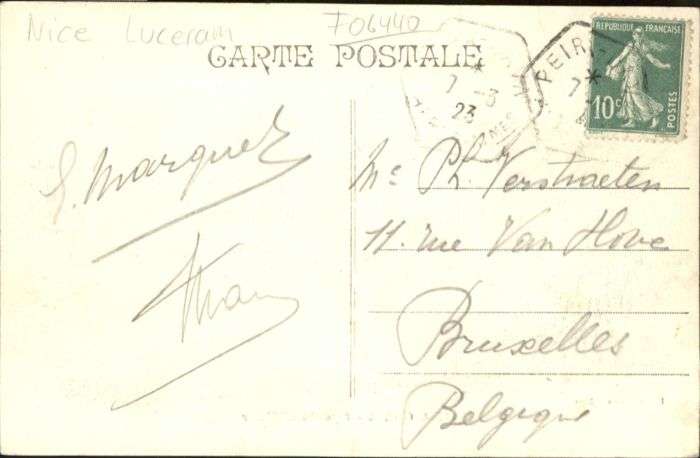 Nice Luceram F06440
CARTE POSTALE
PEIR
7 * 7 *
-3
23
RÉPUBLIQUE FRANÇAISE
10c
POSTES
Marquet
Mr Ph. Verstraeten
11. rue Van Hove
Bruxelles
Belgique